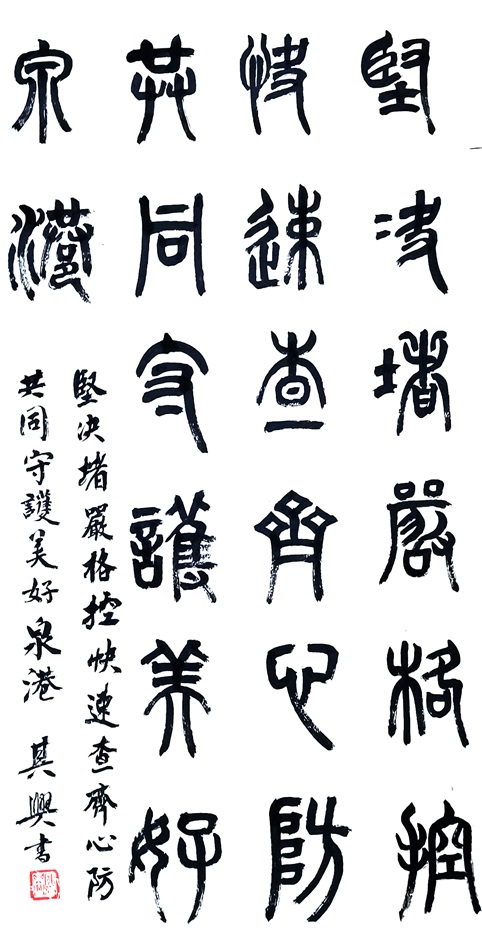 堅决堵嚴格控
快速查齊心防
共同守護美好
泉港
堅决堵嚴格控快速查齊心防
共同守護美好泉港 其興書